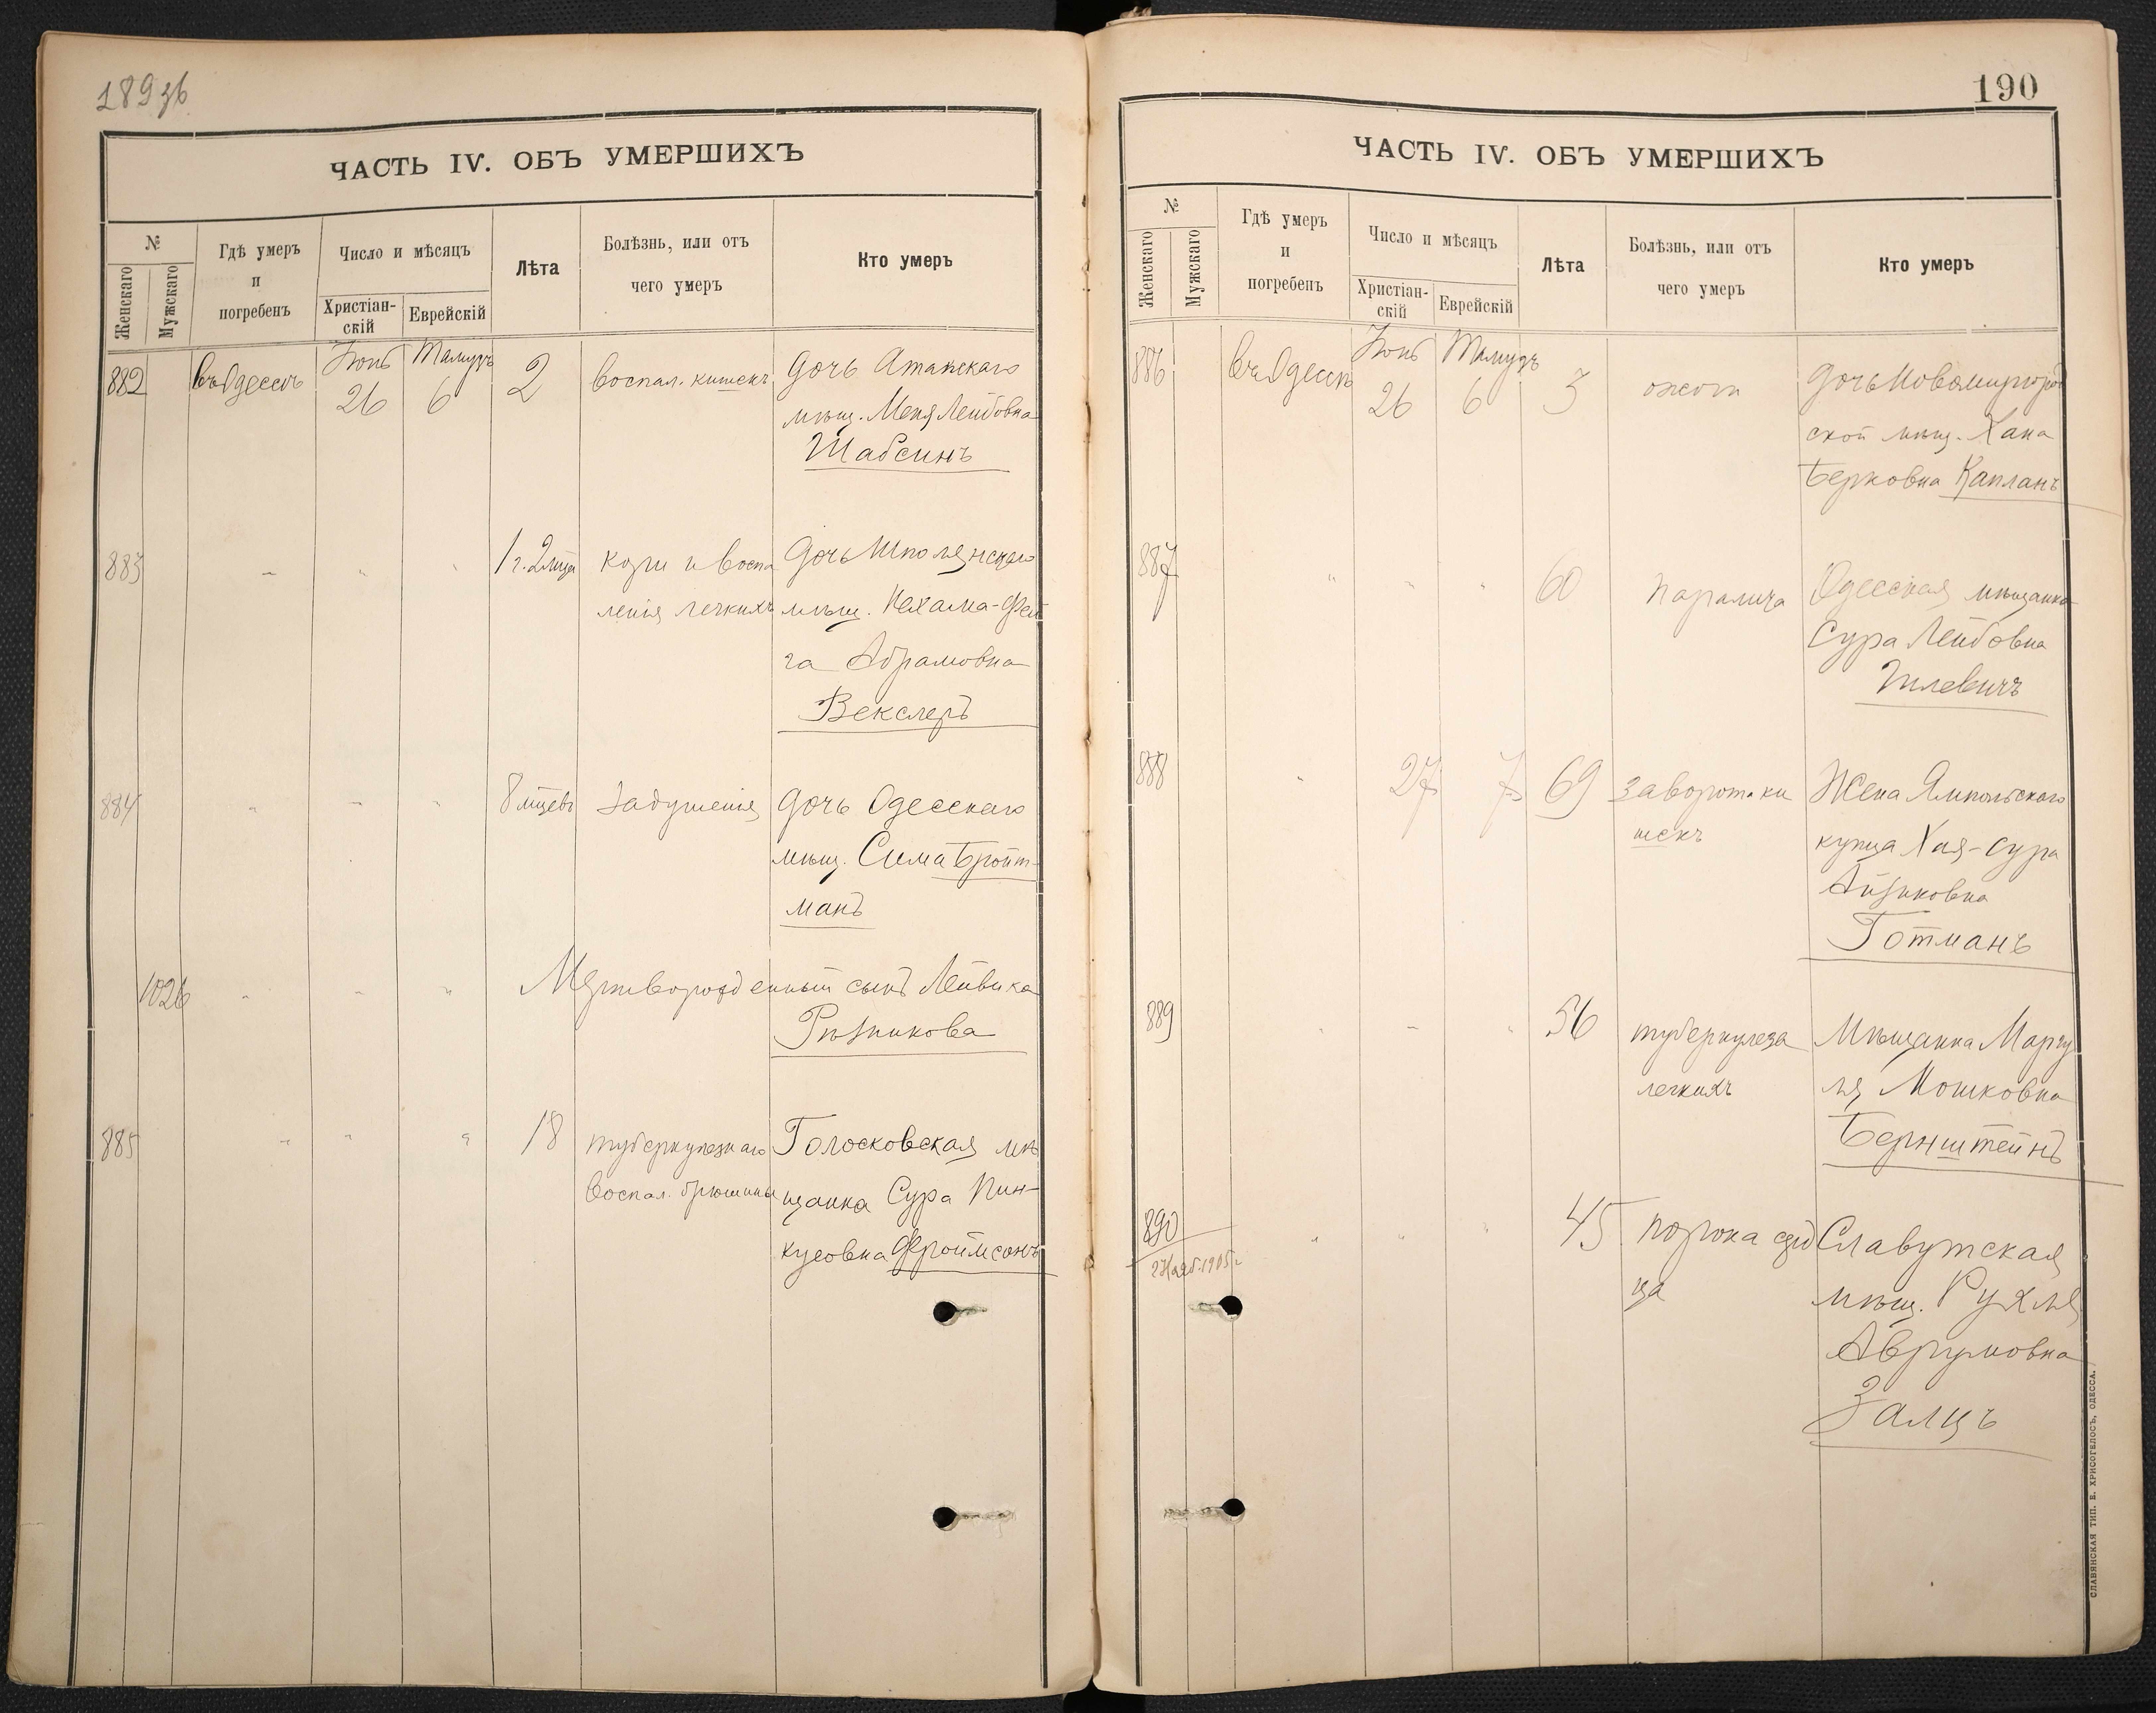 189 зв
ЧАСТЬ IV. ОБЪ УМЕРШИХЪ
№
Женскаго
Мужскаго
Гдѣ умеръ
и
погребенъ
Число и мѣсяцъ
Христіан-
скій
Еврейскій
Лѣта
Болѣзнь, или отъ
чего умеръ
Кто умеръ
882 въ Одессѣ Іюнь 26 Тамузъ 6 2 воспал. кишекъ дочь Атакскаго
мѣщ. Меня Лейбовна
Шабсинъ
883 " " " 1 г. 2 мца кори и воспа дочь Шполянскаго
ленія легкихъ мѣщ. Нехама-Фей
га Абрамовна
Векслеръ
884 " " " 8 мцевъ задушенія дочь Одесскаго
мѣщ. Сима Бройт-
манъ
1026 " " " Мертворожденный сынъ Лейвика
Рѣзникова
885 " " " 18 туберкулезнаго Голосковская мѣ
воспал. брюшины щанка Сура Пин-
кусовна Фроимсонъ
190
ЧАСТЬ IV. ОБЪ УМЕРШИХЪ
№
Женскаго
Мужскаго
Гдѣ умеръ
и
погребенъ
Число и мѣсяцъ
Христіан-
скій
Еврейскій
Лѣта
Болѣзнь, или отъ
чего умеръ
Кто умеръ
886 въ Одессѣ Іюнь 26 Тамузъ 6 3 ожога дочь Новомиргород
ской мѣщ. Хана
Берковна Капланъ
887 " " " 60 паралича Одесская мѣщанка
Сура Лейбовна
888 " 27 7 69 заворота ки Жена Ямпольскаго
шекъ купца Хая-Сура
Айзиковна
Готманъ
889 " " " 56 туберкулеза Мѣщанка Маргу
легкихъ ля Мошковна
Бернштейнъ
890 " " " 45 порока серд Славутская
ца мѣщ. Рухля
Аврумовна
Залцъ
СЛАВЯНСКАЯ ТИП. Е. ХРИСОГЕЛОСЪ, ОДЕССА.